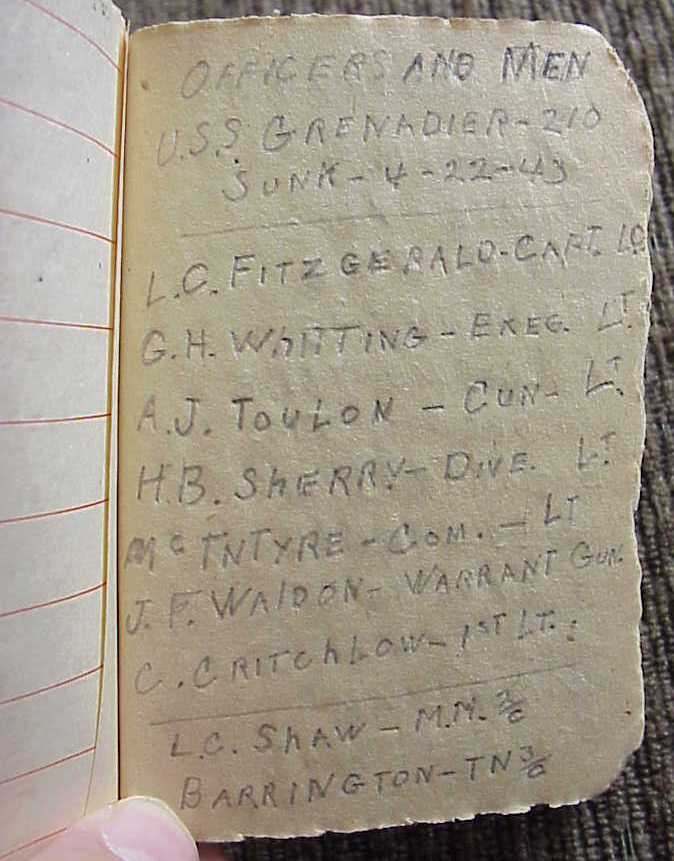 OFFICERS AND MEN
U.S.S. GRENADIER-210
SUNK-4-22-43
L.C. FITZGERALD-CAPT. LC
G.H. WHITTING-EXEC. LT.
A.J. TOULON - GUN- LT.
H.B. SHERRY- DIVE. LT
McINTYRE-COM. - LT
J.F. WALDON- WARRANT GUN.
C. CRITCHLOW-1ST LT.
L.C. SHAW - M.M. 2/c
BARRINGTON-TN 3/c